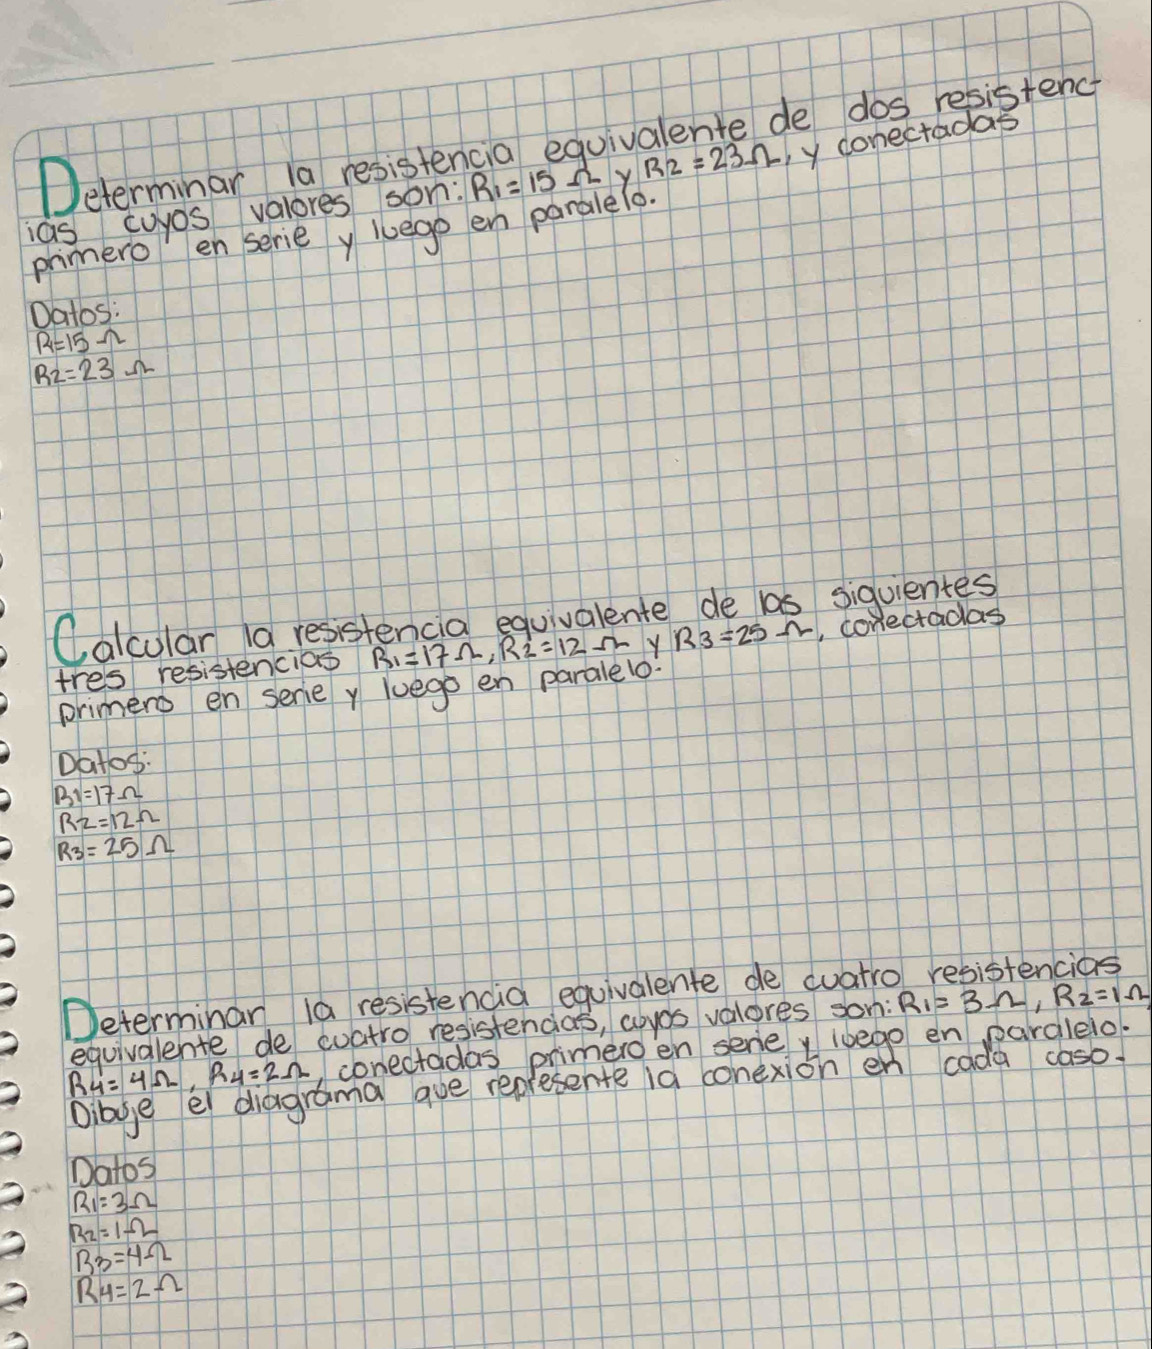 Determinar la resistencia equivalente de dos resistenc-
ias cuyos valores son: R1=15 Ω y R2=23Ω, y conectadas
primero en serie y luego en paralelo.
Datos:
R1=15 Ω
R2=23 Ω
Calcular la resistencia equivalente de las siguientes
tres resistencias R1=17Ω, R2=12 Ω y R3=25 Ω, conectadas
primero en serie y luego en paralelo.
Datos:
R1=17Ω
R2=12Ω
R3=25 Ω
Determinar la resistencia equivalente de cuatro resistencias
equivalente de cuatro resistencias, cuyos valores son: R1= 3Ω, R2=1Ω
R4=4Ω, R4=2Ω, conectadas primero en serie y luego en paralelo.
Dibuje el diagrama que represente la conexión en cada caso.
Datos
R1=3Ω
R2=1Ω
R3=4Ω
R4=2Ω